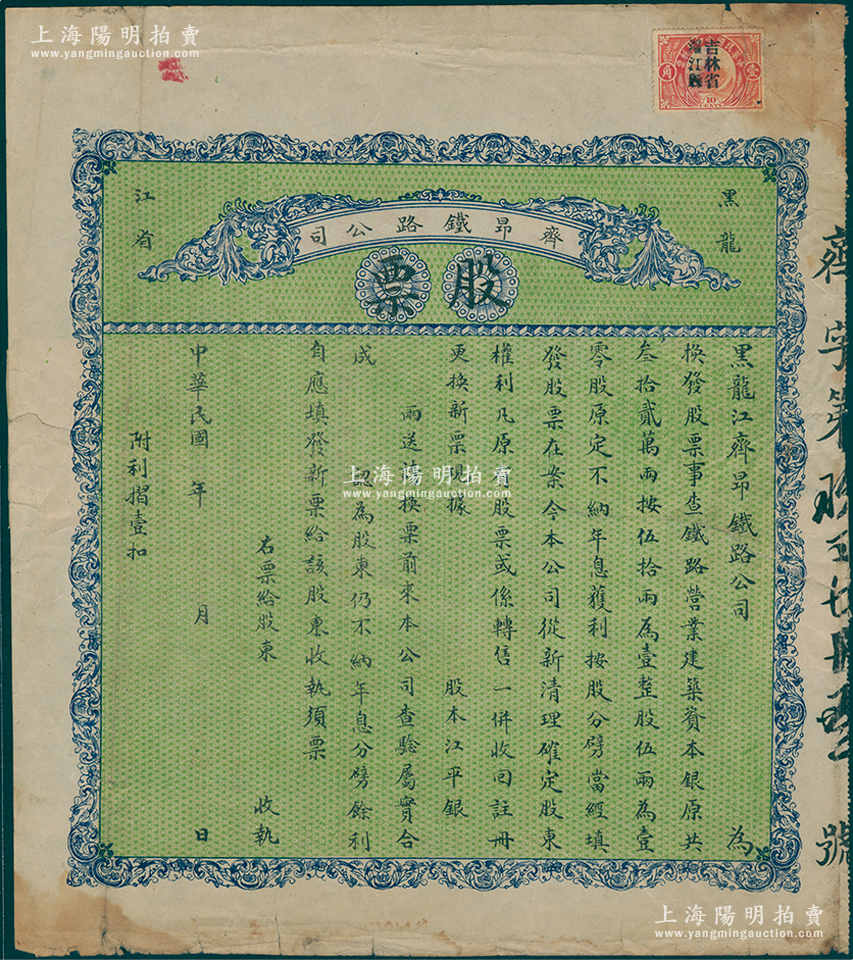 上海陽明拍賣
www.yangmingauction.com
吉林省
江縣
壹
角
10
CENTS
黑龍
江省
齊昂鐵路公司
股票
黑龍江齊昂鐵路公司 為
換發股票事查鐵路營業建築資本銀原共
叁拾貳萬兩按伍拾兩為壹整股伍兩為壹
零股原定不納年息獲利按股分劈當經填
發股票在案今本公司從新清理確定股東
權利凡原有股票或係轉售一併收回註冊
更換新票現據 股本江平銀
兩送請換票前來本公司查驗屬實合
成 認為股東仍不納年息分劈餘利
自應填發新票給該股東收執須票
右票給股東 收執
中華民國 年 月 日
附利摺壹扣
齊字第 號
上海陽明拍賣
www.yangmingauction.com
上海陽明拍賣
www.yangmingauction.com